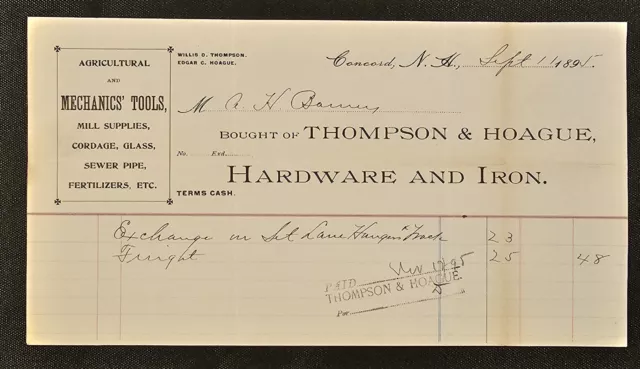 AGRICULTURAL
AND
MECHANICS' TOOLS,
MILL SUPPLIES,
CORDAGE, GLASS,
SEWER PIPE,
FERTILIZERS, ETC.
WILLIS D. THOMPSON.
EDGAR C. HOAGUE.
Concord, N. H., Sept 11 1895.
M A H
BOUGHT OF THOMPSON & HOAGUE,
No. Fvd.
HARDWARE AND IRON.
TERMS CASH.
Exchange on Set Lane Hangers Track 23
Freight 25 48
PAID Nov 12 95
THOMPSON & HOAGUE
Per